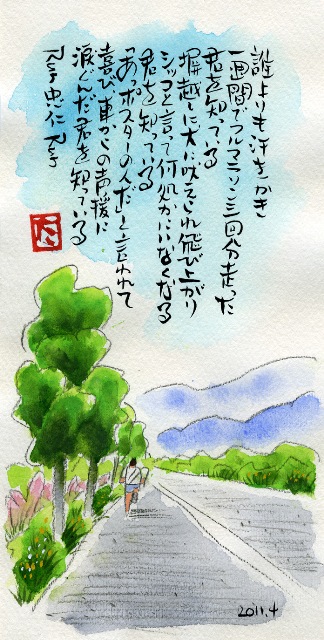 誰よりも汗をかき
一週間でフルマラソン三回分走った
君を知っている
塀越しに犬に吠えられ飛び上がり
シッコと言って何処かにいなくなる
君を知っている
「あっ、ポスターの人だ」と言われて
喜び、車からの声援に
涙ぐんだ君を知っている
忠仁
2011.4